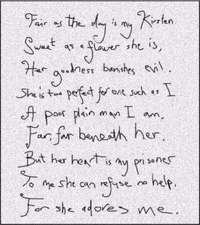 Fair as the day is my Kirsten.
Sweet as a flower she is,
Her goodness banishes evil.
She is too perfect for one such as I
A poor plain man I am.
Far, far beneath her.
But her heart is my prisoner
To me she can refuse no help.
For she adores me.